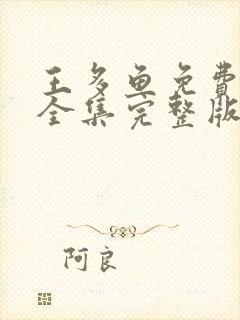 王多鱼免费
全集完整版
阿良